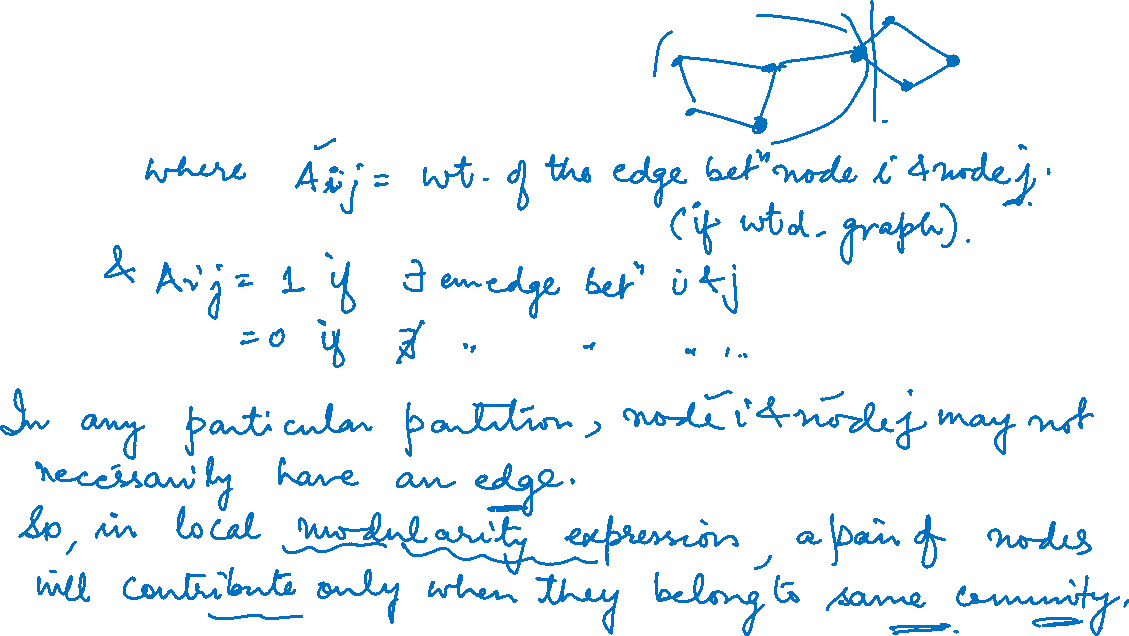 where Aij = wt. of the edge betⁿ node i & node j.
(if wtd. graph).
& Aij = 1 if ∃ an edge betⁿ i & j
= 0 if ∄ " " " "
In any particular partition, node i & node j may not
necessarily have an edge.
So, in local modularity expression, a pair of nodes
will contribute only when they belong to same comunity.